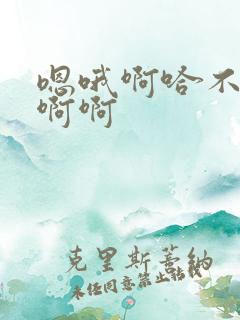 嗯哦啊哈不
啊啊
克里斯蒂納
未经同意禁止转载